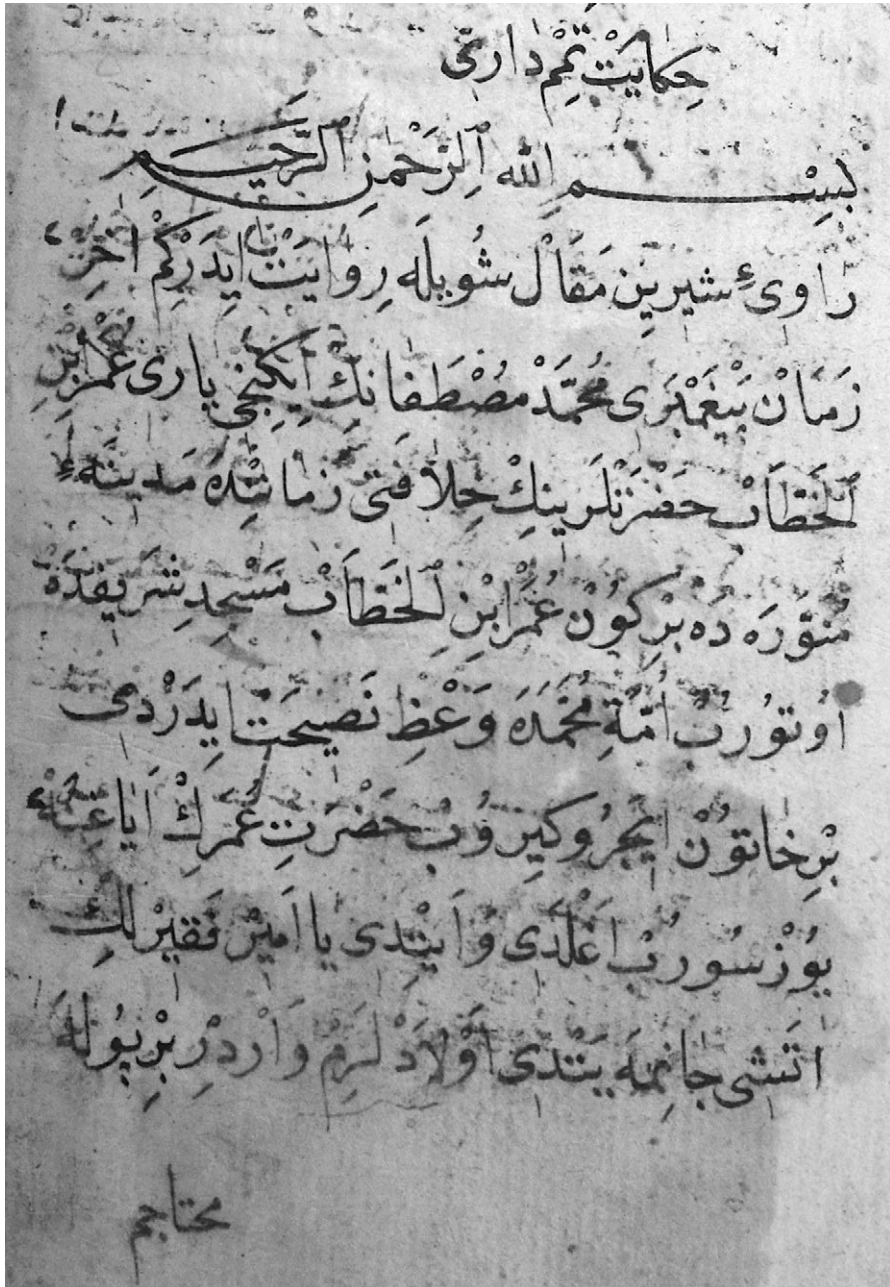 حِكَايَتْ تَمِمْ دَارِىّ
بِسْمِ اللهِ ٱلرَّحْمٰنِ ٱلرَّحِيمِ
رَاوِئِ شِيرِينْ مَقَالْ شُويْلَه رِوَايَتْ اِيدَرْكِمْ اٰخِرْ
زَمَانْ پَيْغَمْبَرِى مُحَمَّدْ مُصْطَفَانِكْ اِيكِنْجِى يَارِى عُمَرْ اِبْنِ
ٱلْخَطَّابْ حَضْرَتْلَرِينِكْ خِلَافَتِى زَمَانِنْدَه مَدِينَهِٔ
مُنَوَّرَه دَه بِرْ كُونْ عُمَرْ اِبْنِ ٱلْخَطَّابْ مَسْجِدِ شَرِيفْدَه
اُوتُورُبْ اُمَّةِ مُحَمَّدَه وَعْظِ نَصِيحَتْ اِيدَرْدِى
بِرْ خَاتُونْ اِيچَرُو كِيرُوبْ حَضْرَتِ عُمَرِكْ اَيَاغِنَه
يُوزْ سُورُبْ اَغْلَدِى وَاَيِتْدِى يَا اَمِيرْ فَقِيرْلِكِ
اٰتَشِى جَانِمَه يَتْدِى اَوْلَادْلَرِمْ وَارْدِرْ بِرْ پُولَه
محتاجم